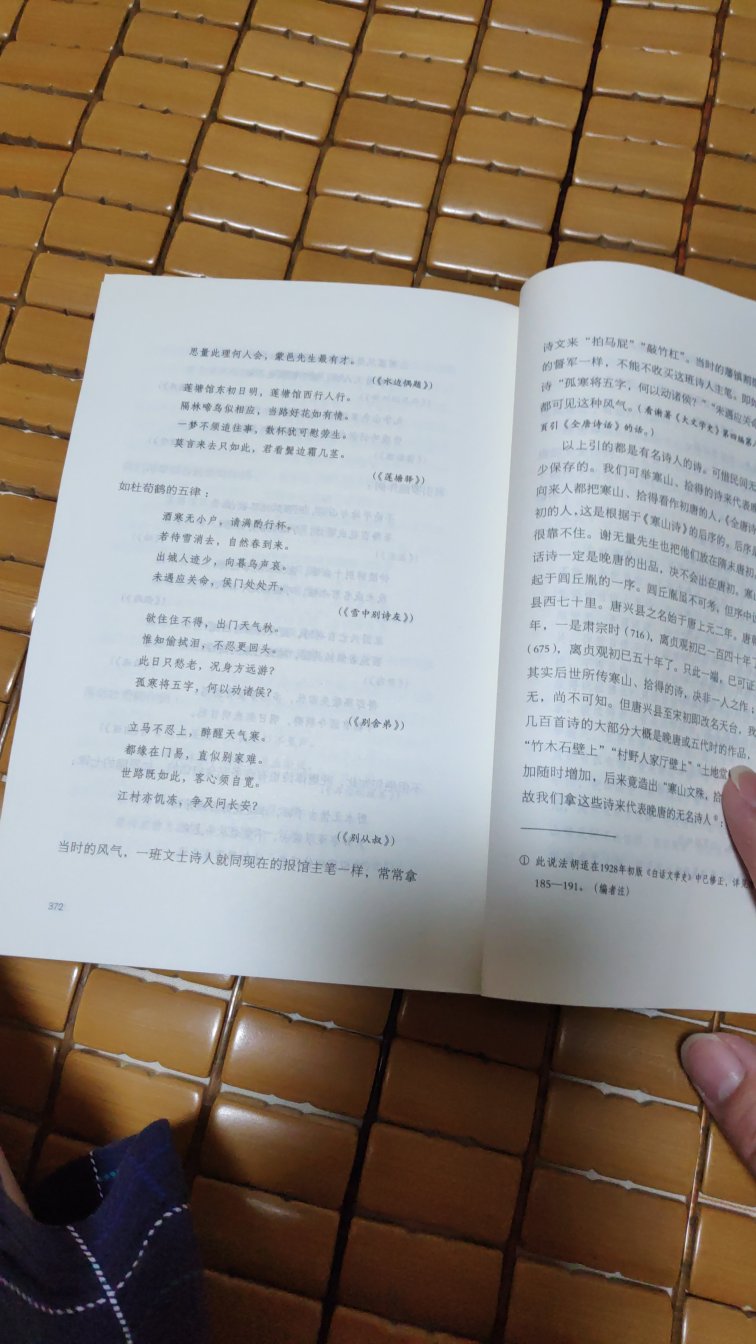 思量此理何人会，蒙邑先生最有才。
（《水边偶题》）
莲塘馆东初日明，莲塘馆西行人行。
隔林啼鸟似相应，当路好花如有情。
一梦不须追往事，数杯犹可慰劳生。
莫言来去只如此，君看鬓边霜几茎。
（《莲塘驿》）
如杜荀鹤的五律：
酒寒无小户，请满酌行杯。
若待雪消去，自然春到来。
出城人迹少，向暮鸟声哀。
未遇应关命，侯门处处开。
（《雪中别诗友》）
欲住住不得，出门天气秋。
惟知偷拭泪，不忍更回头。
此日只愁老，况身方远游？
孤寒将五字，何以动诸侯？
（《别舍弟》）
立马不忍上，醉醒天气寒。
都缘在门易，直似别家难。
世路既如此，客心须自宽。
江村亦饥冻，争及问长安？
（《别从叔》）
当时的风气，一班文士诗人就同现在的报馆主笔一样，常常拿
372
诗文来“拍马屁”“敲竹杠”。当时的藩镇都跟
的督军一样，不能不收买这班诗人主笔。即如
诗“孤寒将五字，何以动诸侯？”“未遇应关命
都可见这种风气。（看谢著《大文学史》第四编第
页引《全唐诗话》的话。）
以上引的都是有名诗人的诗。可惜民间无
少保存的。我们可举寒山、拾得的诗来代表唐
向来人都把寒山、拾得看作初唐的人，《全唐诗
初的人，这是根据于《寒山诗》的后序的。后序
很靠不住。谢无量先生也把他们放在隋末唐初。
话诗一定是晚唐的出品，决不会出在唐初。寒山
起于闾丘胤的一序。闾丘胤虽不可考，但序中说
县西七十里。唐兴县之名始于唐上元二年。唐朝
年，一是肃宗时（716），离贞观初已一百四十年了
（675），离贞观初已五十年了。只此一端，已可证
其实后世所传寒山、拾得的诗，决非一人之作；
无，尚不可知。但唐兴县至宋初即改名天台，我
几百首诗的大部分大概是晚唐或五代时的作品，
“竹木石壁上”“村野人家厅壁上”“土地堂
加随时增加，后来竟造出“寒山文殊，拾
故我们拿这些诗来代表晚唐的无名诗人①：
① 此说法胡适在1928年初版《白话文学史》中已修正，详见
185—191。（编者注）